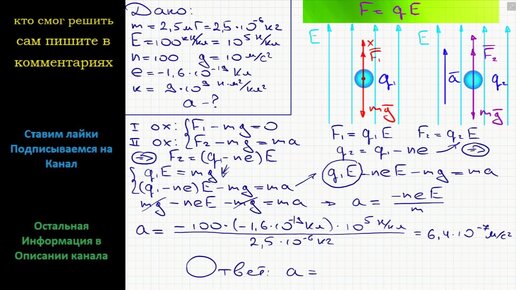 кто смог решить
сам пишите в
комментариях
Ставим лайки
Подписываемся на
Канал
Остальная
Информация в
Описании канала
Дано:
m = 2,5 мг = 2,5·10⁻⁶ кг
E = 100 кН/Кл = 10⁵ Н/Кл
n = 100 g = 10 м/с²
e = -1,6·10⁻¹⁹ Кл
k = 9·10⁹ Н·м²/Кл²
a - ?
F = qE
E x F₁ q₁ mg
E a F₂ q₂ mg
I ox: { F₁ - mg = 0
II ox: { F₂ - mg = ma
F₁ = q₁E F₂ = q₂E
q₂ = q₁ - ne ⇒
⇒ F₂ = (q₁ - ne)E
{ q₁E = mg
{ (q₁ - ne)E - mg = ma ⇒ q₁E - neE - mg = ma
mg - neE - mg = ma ⇒ a = -neE/m
a = -100·(-1,6·10⁻¹⁹ Кл)·10⁵ Н/Кл / 2,5·10⁻⁶ кг = 6,4·10⁻⁷ м/с²
Ответ: a =